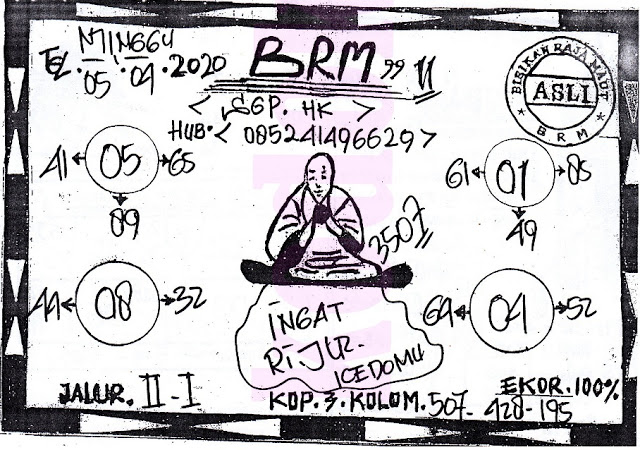 MINGGU
TGL. 05.04.2020
BRM 99
< SGP. HK >
HUB. < 085241496629 >
BISIKAN RAJA MAUT
ASLI
BRM
41 05 65
09
61 01 85
49
3507
44 08 32
64 04 52
INGAT
RI.JUR.
ICEDOMU
JALUR. II - I
EKOR. 100%
KOP. 3. KOLOM. 507 - 428 - 195